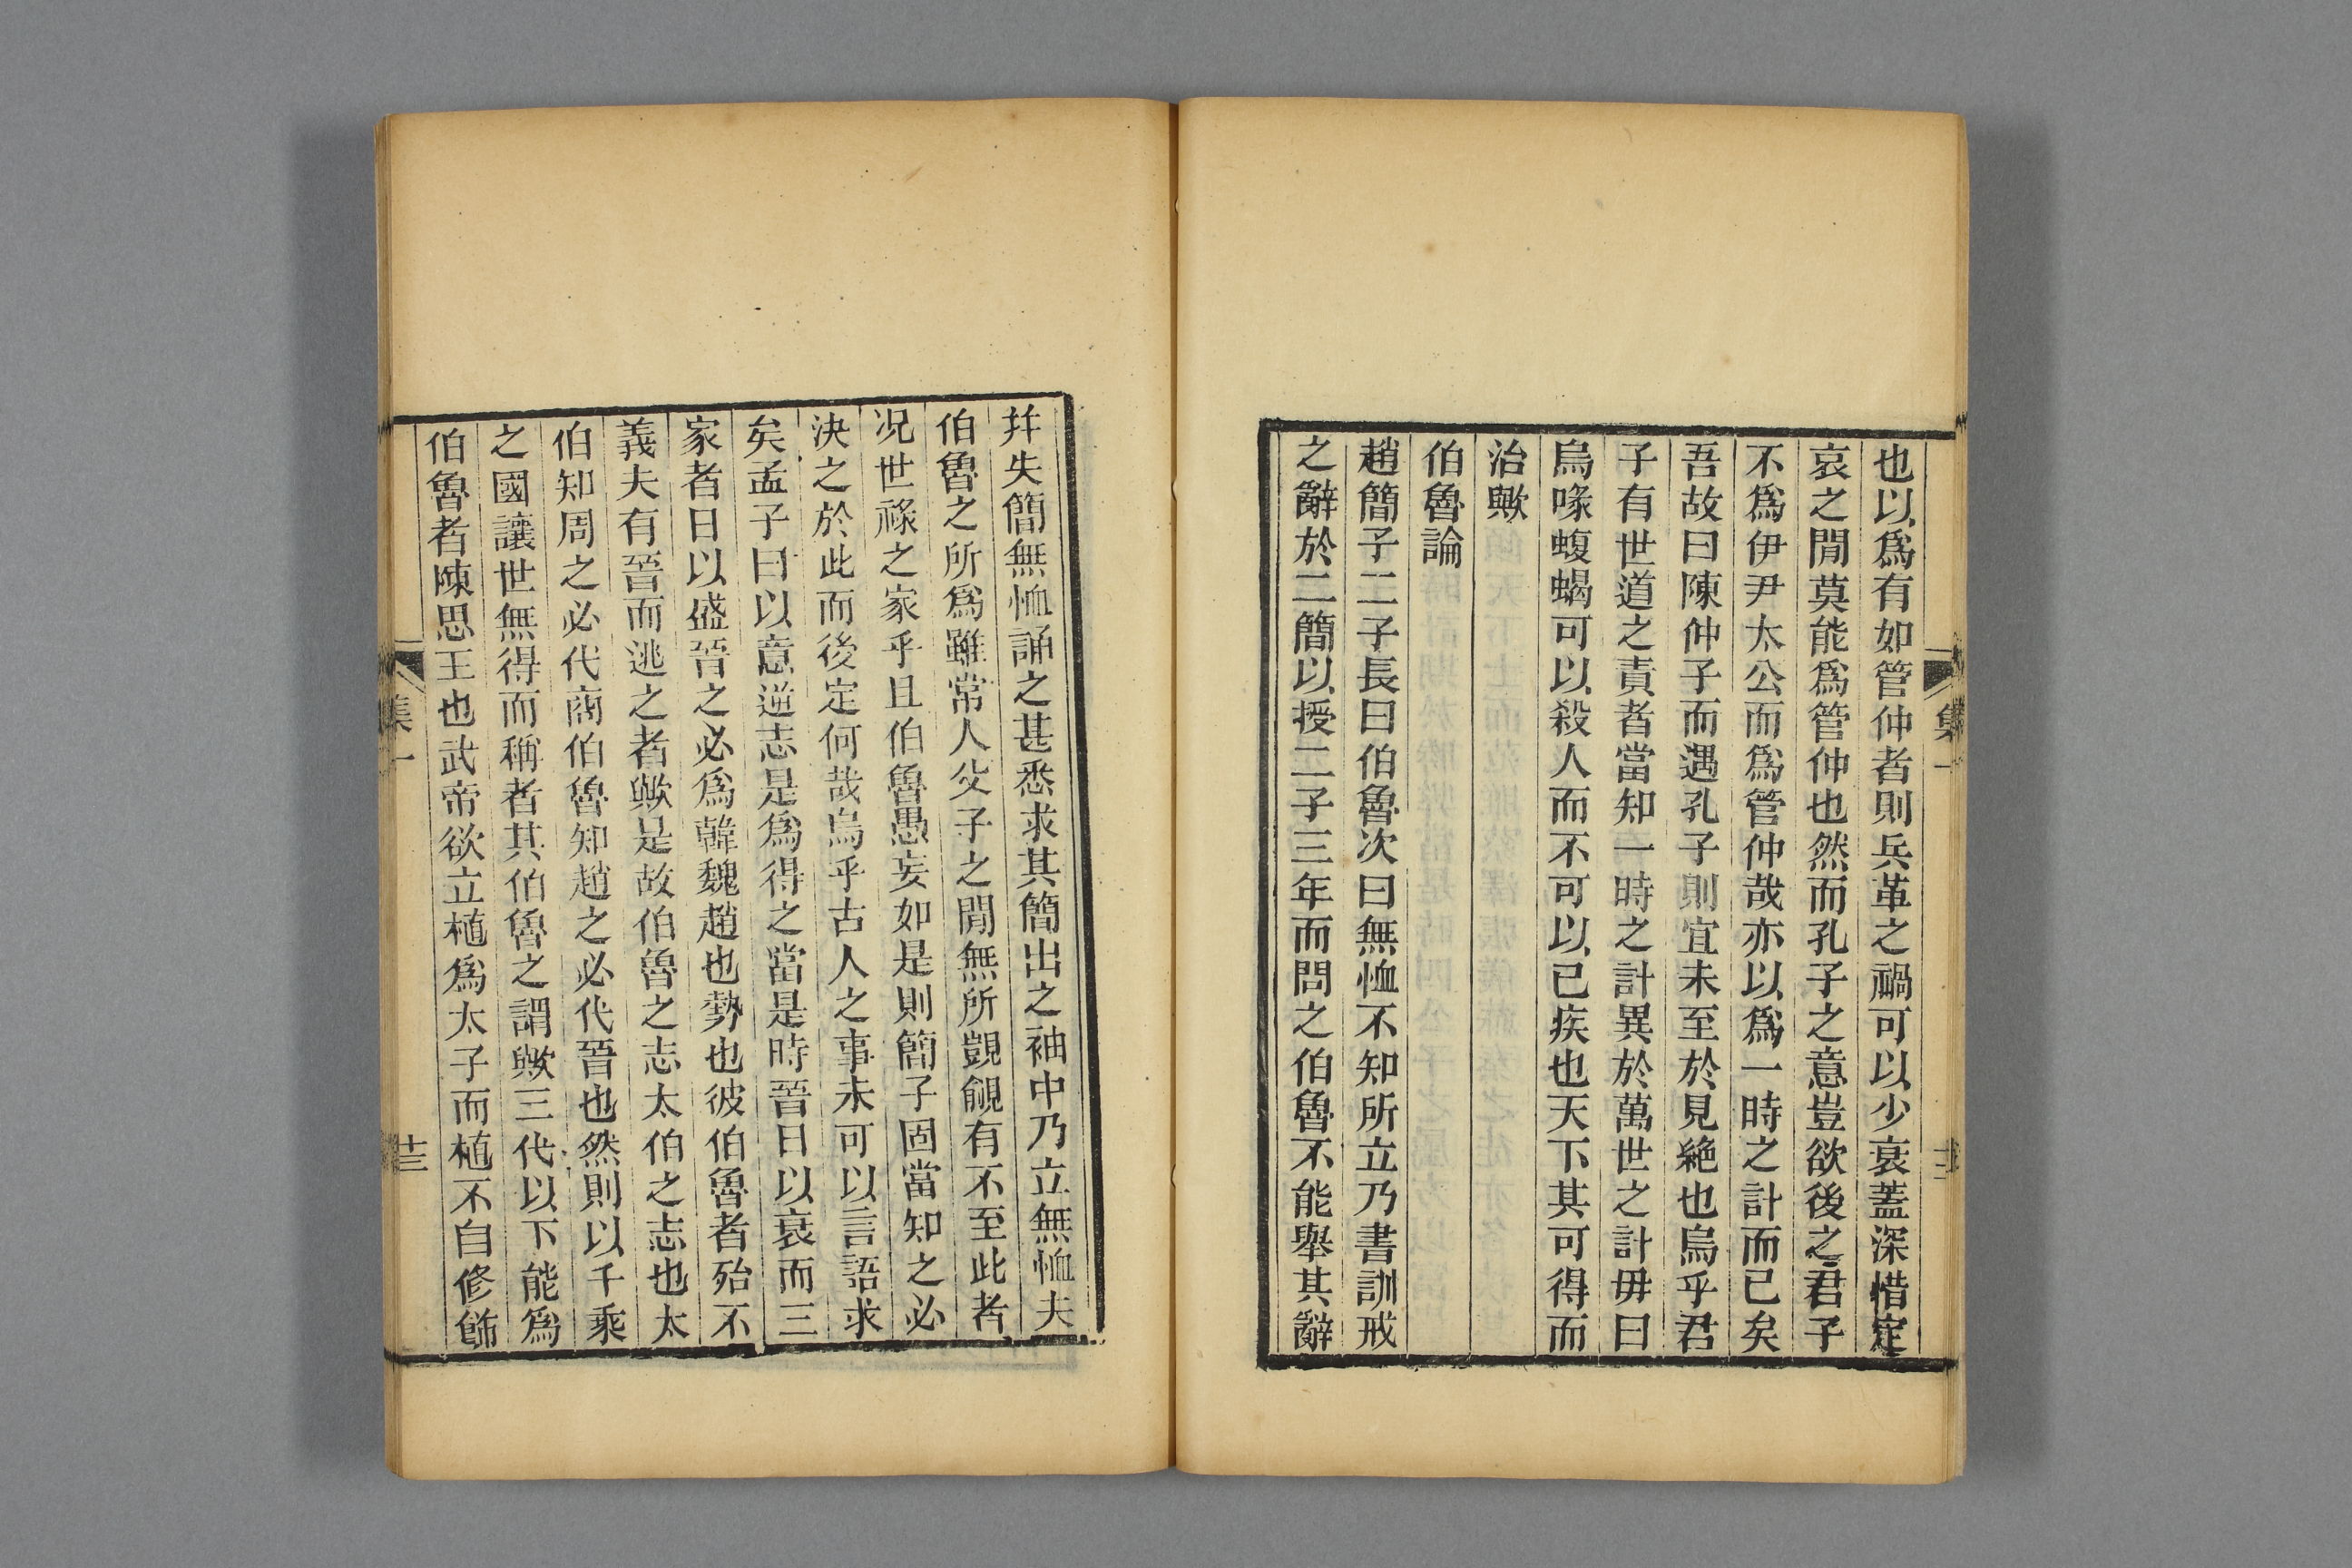 也以爲有如管仲者則兵革之禍可以少衰蓋深惜定
哀之閒莫能爲管仲也然而孔子之意豈欲後之君子
不爲伊尹太公而爲管仲哉亦以爲一時之計而已矣
吾故曰陳仲子而遇孔子則宜未至於見絕也烏乎君
子有世道之責者當知一時之計異於萬世之計毋曰
烏喙蝮蝎可以殺人而不可以已疾也天下其可得而
治歟
伯魯論
趙簡子二子長曰伯魯次曰無恤不知所立乃書訓戒
之辭於二簡以授二子三年而問之伯魯不能舉其辭
集一
幷失簡無恤誦之甚悉求其簡出之袖中乃立無恤夫
伯魯之所爲雖常人父子之閒無所覬覦有不至此者
况世祿之家乎且伯魯愚妄如是則簡子固當知之必
決之於此而後定何哉烏乎古人之事未可以言語求
矣孟子曰以意逆志是爲得之當是時晉日以衰而三
家者日以盛晉之必爲韓魏趙也勢也彼伯魯者殆不
義夫有晉而逃之者歟是故伯魯之志太伯之志也太
伯知周之必代商伯魯知趙之必代晉也然則以千乘
之國讓世無得而稱者其伯魯之謂歟三代以下能爲
伯魯者陳思王也武帝欲立植爲太子而植不自修飾
集一
十三